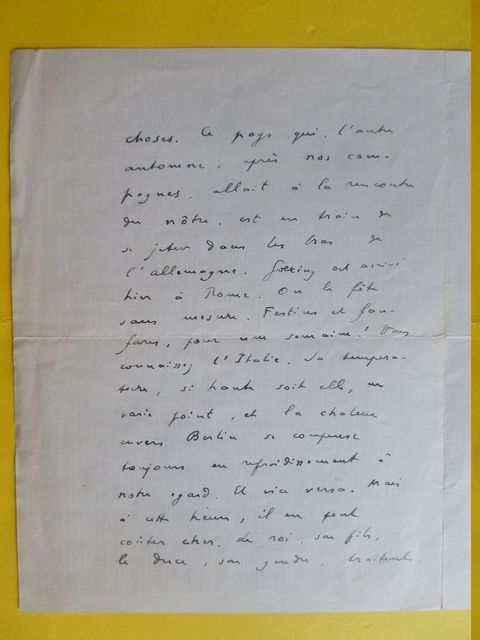 choses. Ce pays qui, l'autre
automne, après nos cam-
pagnes, allait à la rencontre
du nôtre, est en train de
se jeter dans les bras de
l'allemagne. Goering est arrivé
hier à Rome. On le fête
sans mesure. Festins et fan-
fares, pour une semaine! Vous
connaissez l'Italie. Sa tempéra-
ture, si haute soit elle, ne
varie point, et la chaleur
envers Berlin se compense
toujours en refroidissement à
notre égard. Et vice versa. Mais
à cette heure, il en peut
coûter cher. Le roi, son fils,
le duce, son gendre, traitent